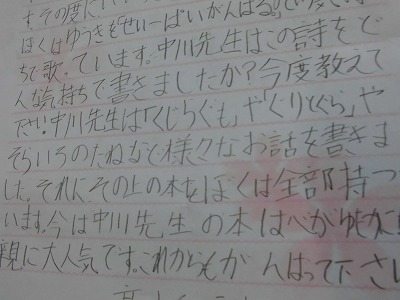 す。その度に
ぼくはゆうきを「せいーぱいがんばる。」
ちで歌っています。中川先生はこの詩をど
んな気持ちで書きましたか?今度教えて
下さい。中川先生は「くじらぐも」や「くりとぐら」や
そらいろのたねなど様々なお話を書きま
した。それに、その上の本をぼくは全部持って
います。今は中川先生の本は
親に大人気です。これからもがんばって下さい